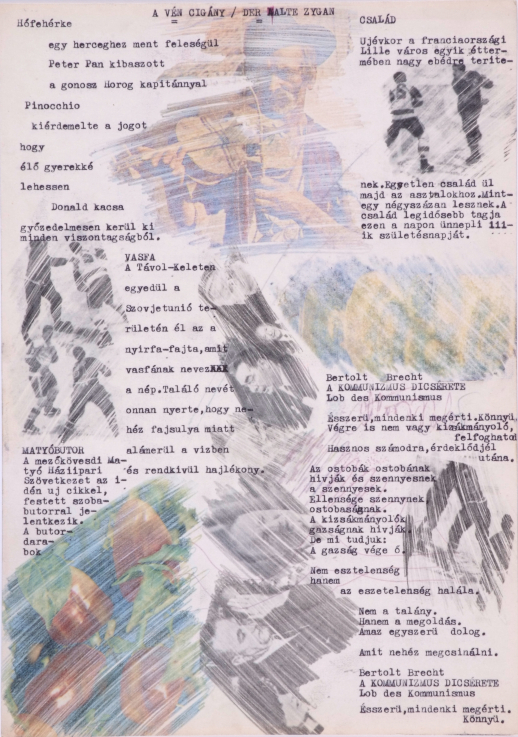 A VÉN CIGÁNY / DER ALTE ZYGAN
Hófehérke
egy herceghez ment feleségül
Peter Pan kibaszott
a gonosz Horog kapitánnyal
Pinocchio
kiérdemelte a jogot
hogy
élő gyerekké
lehessen
Donald kacsa
győzedelmesen kerül ki
minden viszontagságból.
CSALÁD
Ujévkor a franciaországi
Lille város egyik étter-
mében nagy ebédre terite-
nek.Egyetlen család ül
majd az asztalokhoz.Mint-
egy négyszázan lesznek.A
család legidősebb tagja
ezen a napon ünnepli 111-
ik születésnapját.
VASFA
A Távol-Keleten
egyedül a
Szovjetunió te-
rületén él az a
nyirfa-fajta,amit
vasfának nevez
a nép.Találó nevét
onnan nyerte,hogy ne-
héz fajsulya miatt
alámerül a vizben
és rendkivül hajlékony.
MATYÓBUTOR
A mezőkövesdi Ma-
tyó Háziipari
Szövetkezet az i-
dén uj cikkel,
festett szoba-
butorral je-
lentkezik.
A butor-
dara-
bok
Bertolt Brecht
A KOMMUNIZMUS DICSÉRETE
Lob des Kommunismus
Ésszerü,mindenki megérti.Könnyü.
Végre is nem vagy kizsákmányoló,
felfoghatod
Hasznos számodra,érdeklődjél
utána.
Az ostobák ostobának
hivják és szennyesnek
a szennyesek.
Ellensége szennynek,
ostobaságnak.
A kizsákmányolók
gazságnak hivják.
De mi tudjuk:
A gazság vége ő.
Nem esztelenség
hanem
az eszetelenség halála.
Nem a talány.
Hanem a megoldás.
Ámaz egyszerü dolog.
Amit nehéz megcsinálni.
Bertolt Brecht
A KOMMUNIZMUS DICSÉRETE
Lob des Kommunismus
Ésszerü,mindenki megérti.
Könnyü.